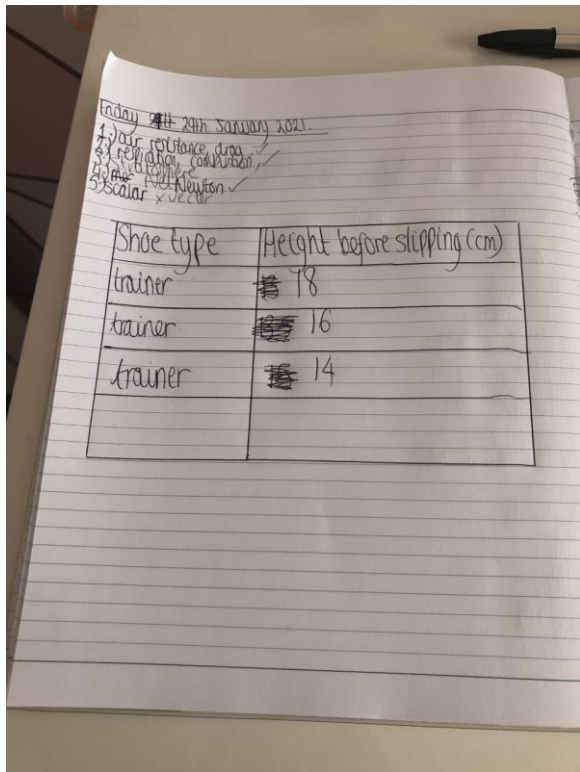 Friday 29th January 2021.
1.) air resistance, drag. ✓
2.) respiration, combustion, ✓
3.) stratosphere
4.) Newton ✓
5.) scalar x vector
Shoe type Height before slipping (cm)
trainer 18
trainer 16
trainer 14